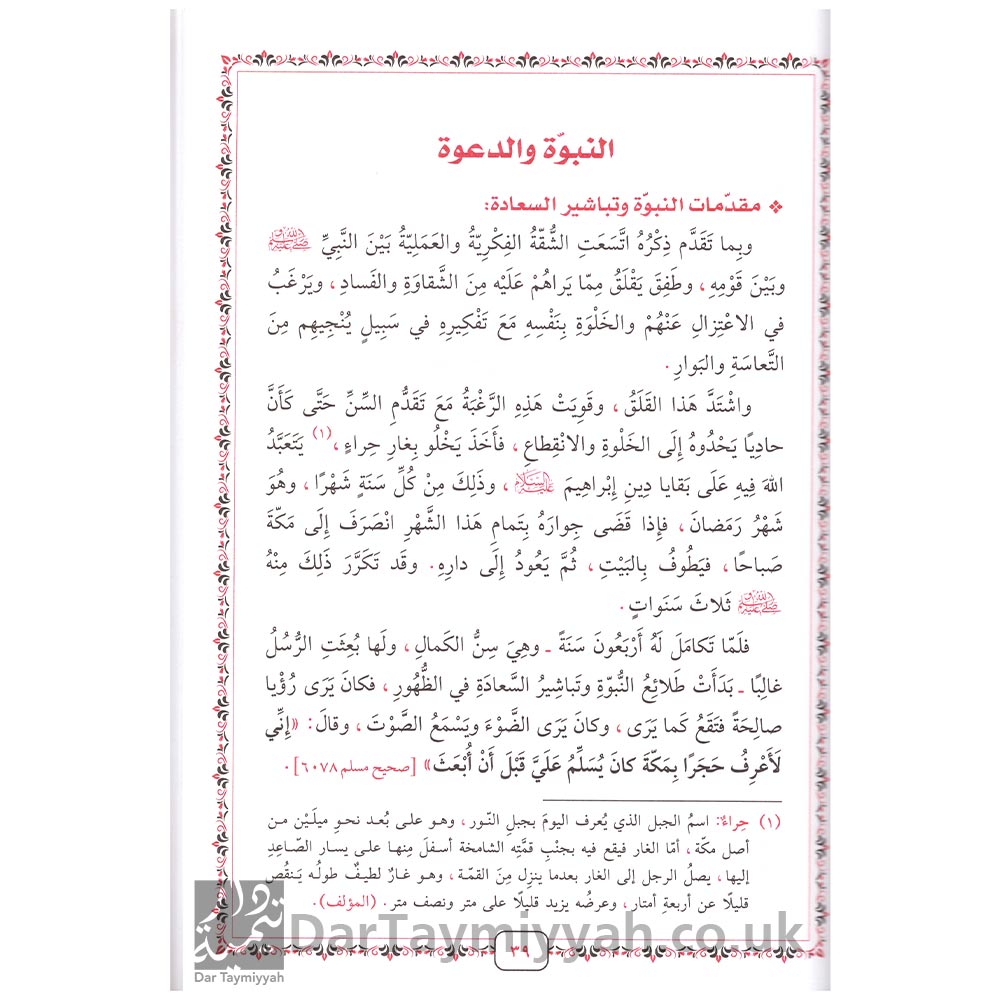 النبوّة والدعوة
❖ مقدّمات النبوّة وتباشير السعادة:
وبِما تَقَدَّم ذِكْرُهُ اتَّسَعَتِ الشُّقّةُ الفِكْرِيّةُ والعَمَلِيّةُ بَيْنَ النَّبِيِّ ﷺ
وبَيْنَ قَوْمِهِ، وطَفِقَ يَقْلَقُ مِمّا يَراهُمْ عَلَيْه مِنَ الشَّقاوَةِ والفَسادِ، ويَرْغَبُ
في الاعْتِزالِ عَنْهُمْ والخَلْوَةِ بِنَفْسِهِ مَعَ تَفْكِيرِهِ في سَبِيلٍ يُنْجِيهِم مِنَ
التَّعاسَةِ والبَوارِ.
واشْتَدَّ هَذا القَلَقُ، وقَوِيَتْ هَذِهِ الرَّغْبَةُ مَعَ تَقَدُّمِ السِّنِّ حَتَّى كَأَنَّ
حادِيًا يَحْدُوهُ إِلَى الخَلْوةِ والانْقِطاعِ، فأَخَذَ يَخْلُو بِغارِ حِراءٍ،(١) يَتَعَبَّدُ
اللهَ فِيهِ عَلَى بَقايا دِينِ إِبْراهِيمَ عَلَيْهِ السَّلَام، وذَلِكَ مِنْ كُلِّ سَنَةٍ شَهْرًا، وهُوَ
شَهْرُ رَمَضانَ، فإِذا قَضَى جِوارَهُ بِتَمامِ هَذا الشَّهْرِ انْصَرَفَ إِلَى مَكّةَ
صَباحًا، فيَطُوفُ بِالبَيْتِ، ثُمَّ يَعُودُ إِلَى دارِهِ. وقَد تَكَرَّرَ ذَلِكَ مِنْهُ
ﷺ ثَلاثَ سَنَواتٍ.
فلَمّا تَكامَلَ لَهُ أَرْبَعُونَ سَنَةً ـ وهِيَ سِنُّ الكَمالِ، ولَها بُعِثَتِ الرُّسُلُ
غالِبًا ـ بَدَأَتْ طَلائِعُ النُّبوّةِ وتَباشِيرُ السَّعادَةِ في الظُّهُورِ، فكانَ يَرَى رُؤْيا
صالِحَةً فتَقَعُ كَما يَرَى، وكانَ يَرَى الضَّوْءَ ويَسْمَعُ الصَّوْتَ، وقالَ: «إِنِّي
لَأَعْرِفُ حَجَرًا بِمَكّةَ كانَ يُسَلِّمُ عَلَيَّ قَبْلَ أَنْ أُبْعَثَ» [صحيح مسلم ٦٠٧٨].
(١) حِراءٌ: اسمُ الجبل الذي يُعرف اليومَ بجبلِ النّور، وهو على بُعد نحوِ ميلَيْن من
أصل مكّة، أمّا الغار فيقع فيه بجنْبِ قمّتِه الشامخة أسفلَ مِنها على يسار الصّاعِدِ
إليها، يصلُ الرجل إلى الغار بعدما ينزِل مِنَ القمّة، وهو غارٌ لطيفٌ طولُه يَنقُص
قليلًا عن أربعةِ أمتار، وعرضُه يزيد قليلًا على متر ونصف متر. (المؤلف).
٣٩
Dar Taymiyyah
DarTaymiyyah.co.uk